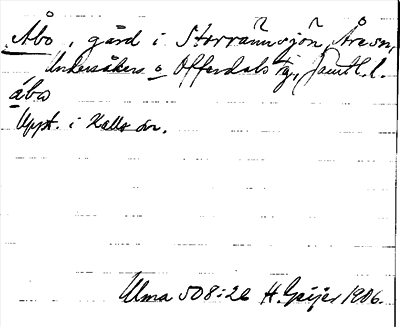 Åbo, gård i Storrännsjön, Åre sn,
Undersåkers o Offerdals tg, Jämtl. l.
åbo
Uppt. i Kalls sn.
Ulma 508:26 H. Geijer 1906.